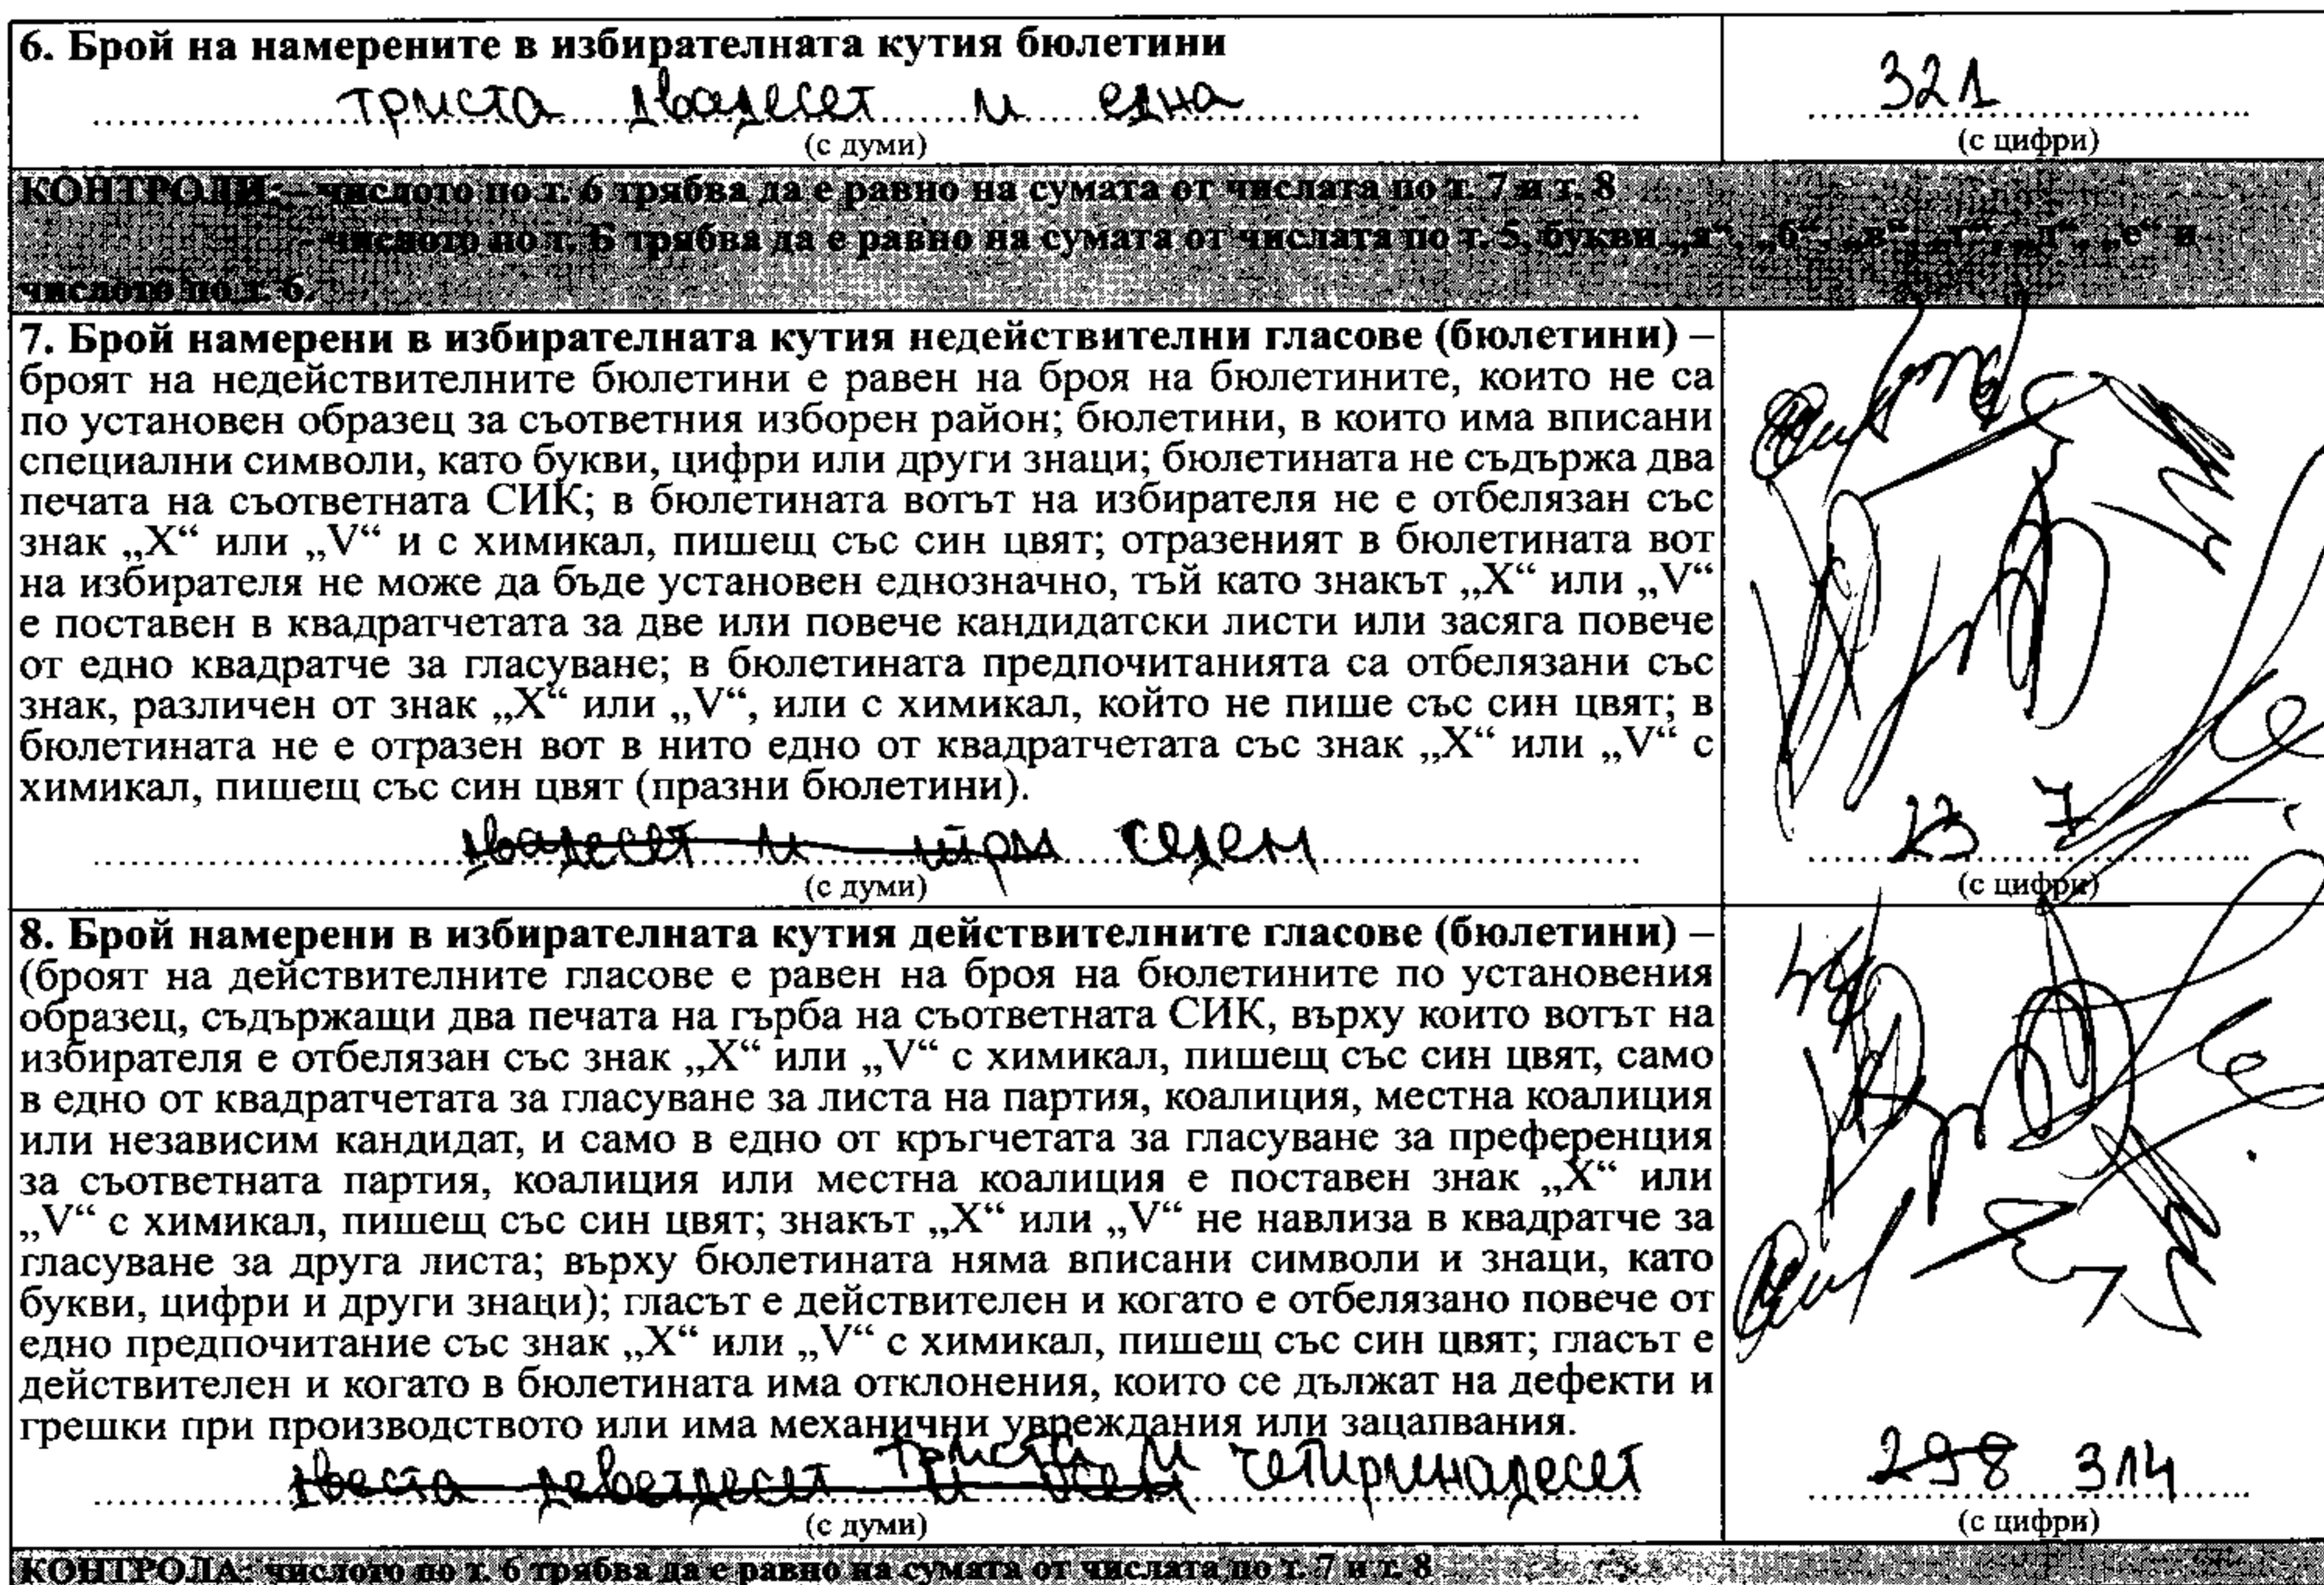 6. Брой на намерените в избирателната кутия бюлетини
триста двадесет и една
321
(с думи)
(с цифри)
КОНТРОЛИ: – числото по т. 6 трябва да е равно на сумата от числата по т. 7 и т. 8
- числото по т. Б трябва да е равно на сумата от числата по т. 5, букви „а“, „б“, „в“, „г“, „д“, „е“ и
числото по т. 6.
7. Брой намерени в избирателната кутия недействителни гласове (бюлетини) –
броят на недействителните бюлетини е равен на броя на бюлетините, които не са
по установен образец за съответния изборен район; бюлетини, в които има вписани
специални символи, като букви, цифри или други знаци; бюлетината не съдържа два
печата на съответната СИК; в бюлетината вотът на избирателя не е отбелязан със
знак „X“ или „V“ и с химикал, пишещ със син цвят; отразеният в бюлетината вот
на избирателя не може да бъде установен еднозначно, тъй като знакът „X“ или „V“
е поставен в квадратчетата за две или повече кандидатски листи или засяга повече
от едно квадратче за гласуване; в бюлетината предпочитанията са отбелязани със
знак, различен от знак „X“ или „V“, или с химикал, който не пише със син цвят; в
бюлетината не е отразен вот в нито едно от квадратчетата със знак „X“ или „V“ с
химикал, пишещ със син цвят (празни бюлетини).
двадесет и три седем
23 7
(с думи)
(с цифри)
8. Брой намерени в избирателната кутия действителните гласове (бюлетини) –
(броят на действителните гласове е равен на броя на бюлетините по установения
образец, съдържащи два печата на гърба на съответната СИК, върху които вотът на
избирателя е отбелязан със знак „X“ или „V“ с химикал, пишещ със син цвят, само
в едно от квадратчетата за гласуване за листа на партия, коалиция, местна коалиция
или независим кандидат, и само в едно от кръгчетата за гласуване за преференция
за съответната партия, коалиция или местна коалиция е поставен знак „X“ или
„V“ с химикал, пишещ със син цвят; знакът „X“ или „V“ не навлиза в квадратче за
гласуване за друга листа; върху бюлетината няма вписани символи и знаци, като
букви, цифри и други знаци); гласът е действителен и когато е отбелязано повече от
едно предпочитание със знак „X“ или „V“ с химикал, пишещ със син цвят; гласът е
действителен и когато в бюлетината има отклонения, които се дължат на дефекти и
грешки при производството или има механични увреждания или зацапвания.
двеста деветдесет и осем триста и четиринадесет
298 314
(с думи)
(с цифри)
КОНТРОЛА: числото по т. 6 трябва да е равно на сумата от числата по т. 7 и т. 8